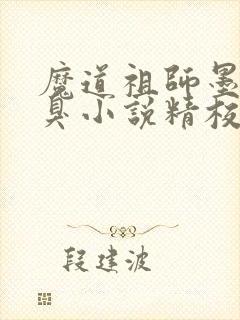 魔道祖師墨
臭小説精校
段建波